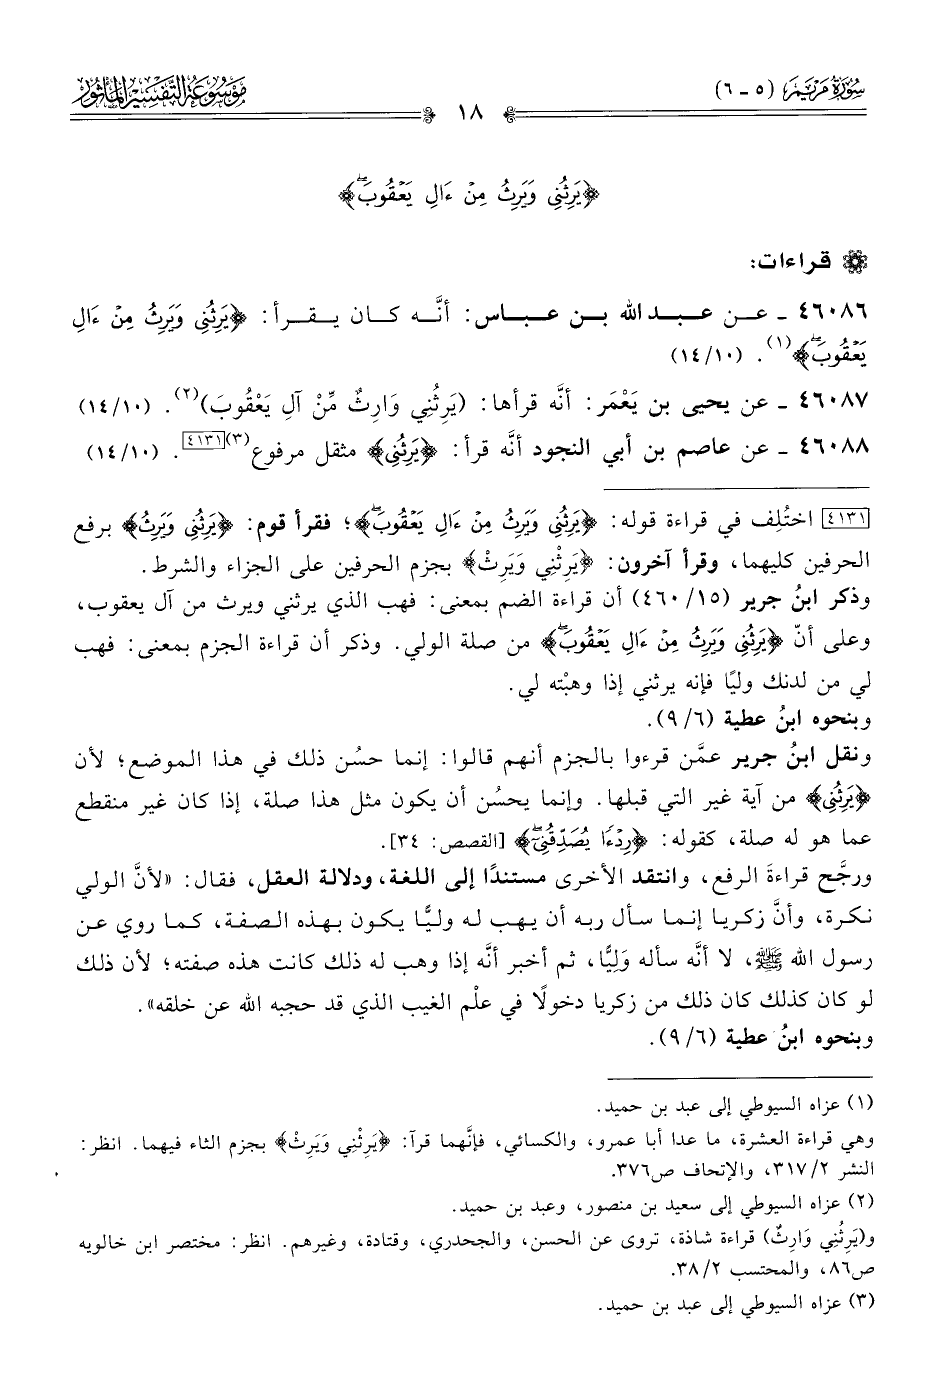 سُورَةُ مَرْيَمَ (٥ - ٦)
١٨
مَوْسُوعَةُ التَّفْسِيرِ المَأْثُور
﴿يَرِثُنِى وَيَرِثُ مِنْ ءَالِ يَعْقُوبَۖ﴾
قراءات:
٤٦٠٨٦ ـ عـن عبـد الله بـن عبـاس: أنَّـه كـان يـقـرأ: ﴿يَرِثُنِى وَيَرِثُ مِنْ ءَالِ
يَعْقُوبَۖ﴾(١). (١٤/١٠)
٤٦٠٨٧ ـ عن يحيى بن يَعْمَر: أنَّه قرأها: (يَرِثُنِي وَارِثٌ مِّنْ آلِ يَعْقُوبَ)(٢). (١٤/١٠)
٤٦٠٨٨ ـ عن عاصم بن أبي النجود أنَّه قرأ: ﴿يَرِثُنِى﴾ مثقل مرفوع(٣)[٤١٣١]. (١٤/١٠)
[٤١٣١] اختُلِف في قراءة قوله: ﴿يَرِثُنِى وَيَرِثُ مِنْ ءَالِ يَعْقُوبَۖ﴾؛ فقرأ قوم: ﴿يَرِثُنِى وَيَرِثُ﴾ برفع
الحرفين كليهما، وقرأ آخرون: ﴿يَرِثْنِي وَيَرِثْ﴾ بجزم الحرفين على الجزاء والشرط.
وذكر ابنُ جرير (٤٦٠/١٥) أن قراءة الضم بمعنى: فهب الذي يرثني ويرث من آل يعقوب،
وعلى أنّ ﴿يَرِثُنِى وَيَرِثُ مِنْ ءَالِ يَعْقُوبَۖ﴾ من صلة الولي. وذكر أن قراءة الجزم بمعنى: فهب
لي من لدنك وليًا فإنه يرثني إذا وهبْته لي.
وبنحوه ابنُ عطية (٩/٦).
ونقل ابنُ جرير عمَّن قرءوا بالجزم أنهم قالوا: إنما حسُن ذلك في هذا الموضع؛ لأن
﴿يَرِثُنِى﴾ من آية غير التي قبلها. وإنما يحسُن أن يكون مثل هذا صلة، إذا كان غير منقطع
عما هو له صلة، كقوله: ﴿رِدْءًا يُصَدِّقُنِىٓۖ﴾ [القصص: ٣٤].
ورجَّح قراءةَ الرفع، وانتقد الأخرى مستندًا إلى اللغة، ودلالة العقل، فقال: «لأنَّ الولي
نكرة، وأنَّ زكريا إنما سأل ربه أن يهب له وليًّا يكون بهذه الصفة، كما روي عن
رسول الله ﷺ، لا أنَّه سأله وَلِيًّا، ثم أخبر أنَّه إذا وهب له ذلك كانت هذه صفته؛ لأن ذلك
لو كان كذلك كان ذلك من زكريا دخولًا في علْم الغيب الذي قد حجبه الله عن خلقه».
وبنحوه ابنُ عطية (٩/٦).
(١) عزاه السيوطي إلى عبد بن حميد.
وهي قراءة العشرة، ما عدا أبا عمرو، والكسائي، فإنَّهما قرآ: ﴿يَرِثْنِي وَيَرِثْ﴾ بجزم الثاء فيهما. انظر:
النشر ٣١٧/٢، والإتحاف ص٣٧٦.
(٢) عزاه السيوطي إلى سعيد بن منصور، وعبد بن حميد.
و(يَرِثُنِي وَارِثٌ) قراءة شاذة، تروى عن الحسن، والجحدري، وقتادة، وغيرهم. انظر: مختصر ابن خالويه
ص٨٦، والمحتسب ٣٨/٢.
(٣) عزاه السيوطي إلى عبد بن حميد.